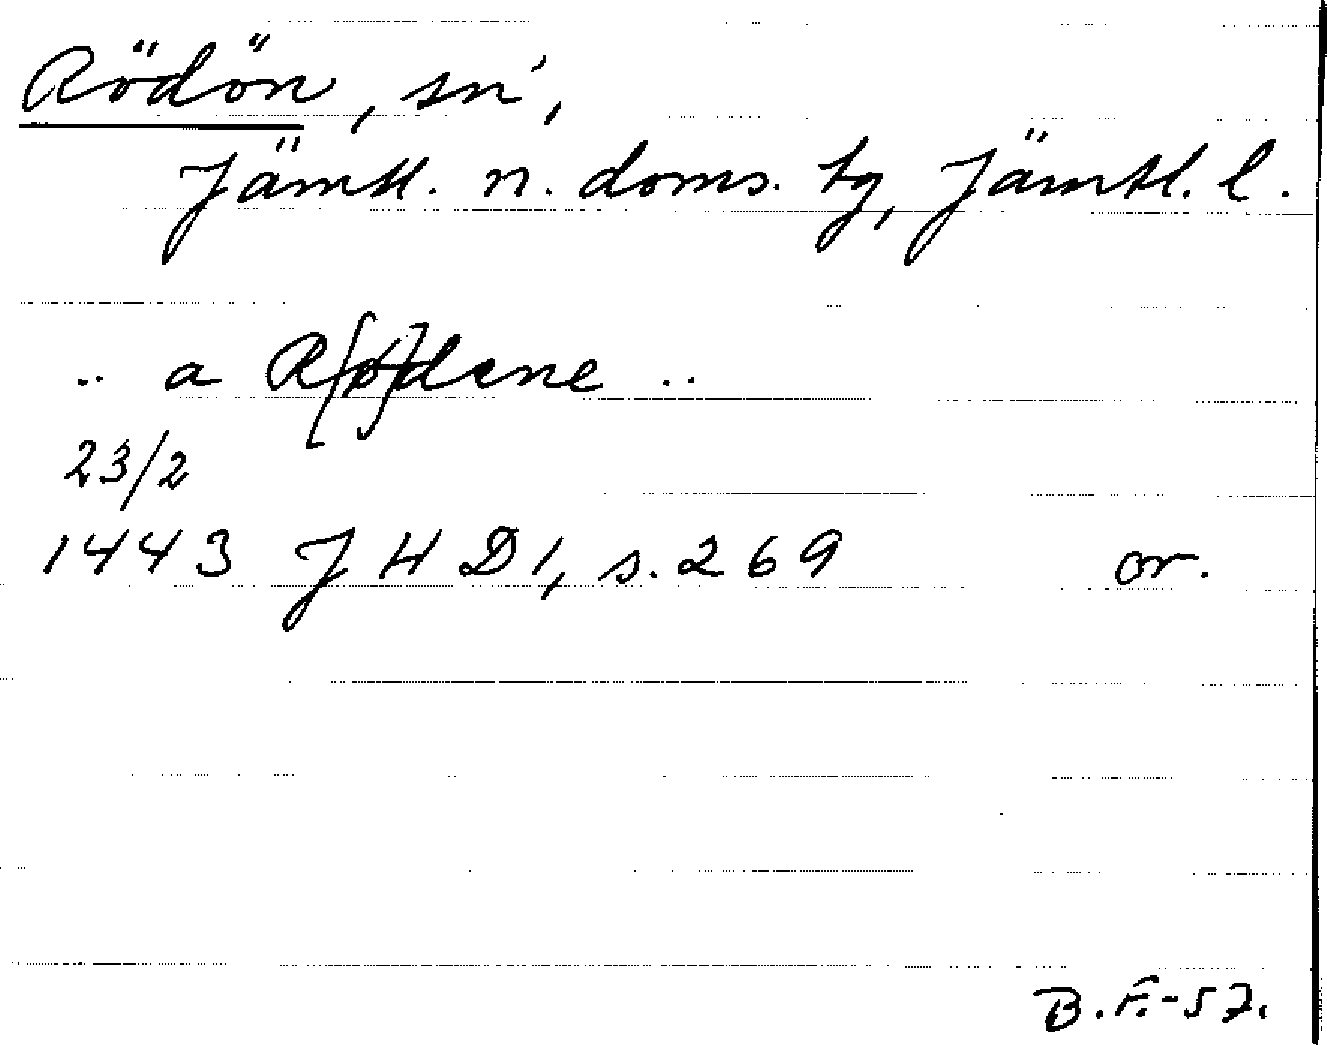 Rödön, sn,
Jämtl. n. doms. tg, Jämtl. l.
.. a R[ø]dene ..
23/2
1443 J H D 1, s. 269 or.
B.F.-57.